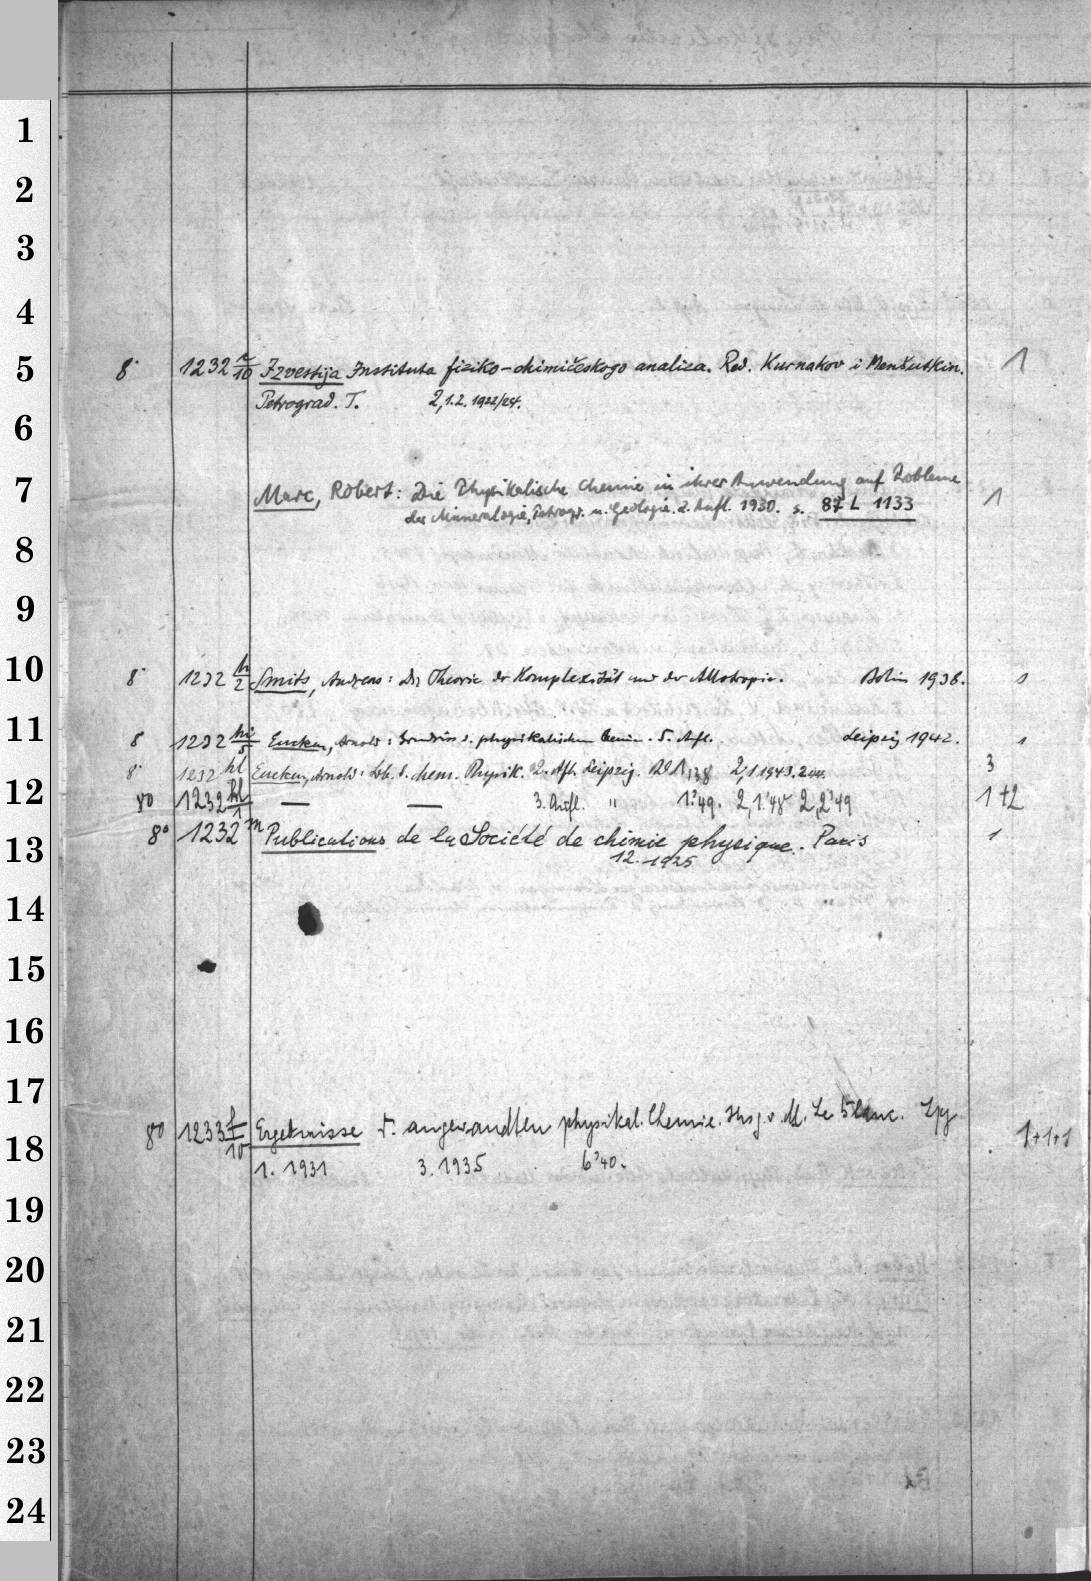 1
2
3
4
5
6
7
8
9
10
11
12
13
14
15
16
17
18
19
20
21
22
23
24
8° 1232 Izvestija Instituta fiziko-chimičeskogo analiza. Red. Kurnakov i Menšutkin. 1
Petrograd. T. 2,1.2. 1922/24.
Marc, Robert: Die Physikalische Chemie in ihrer Anwendung auf Probleme 1
der Mineralogie, Petrogr. u. Geologie. 2. Aufl. 1930. s. 87 L 1133
8° 1232 h/2 Smits, Andreas: Die Theorie der Komplexität und der Allotropie. Berlin 1938. 1
8 1232 hi/5 Eucken, Arnold: Grundriss d. physikalischen Chemie. 5. Aufl. Leipzig 1942. 1
8° 1232 hl Eucken, Arnold: Lrb. d. chem. Physik. 2. Afl. Leipzig. Bd 1,38 2,1 1943. 3
80 1232 hl/1 — — 3. Aufl. " 1.'49. 2,1.'48 2,2'49 1+2
8° 1232 m Publications de la Société de chimie physique. Paris 1
12. 1925
80 1233 f/10 Ergebnisse d. angewandten physikal. Chemie. Hrsg. v. M. Le Blanc. Lpg 1+1+1
1. 1931 3. 1935 6'40.